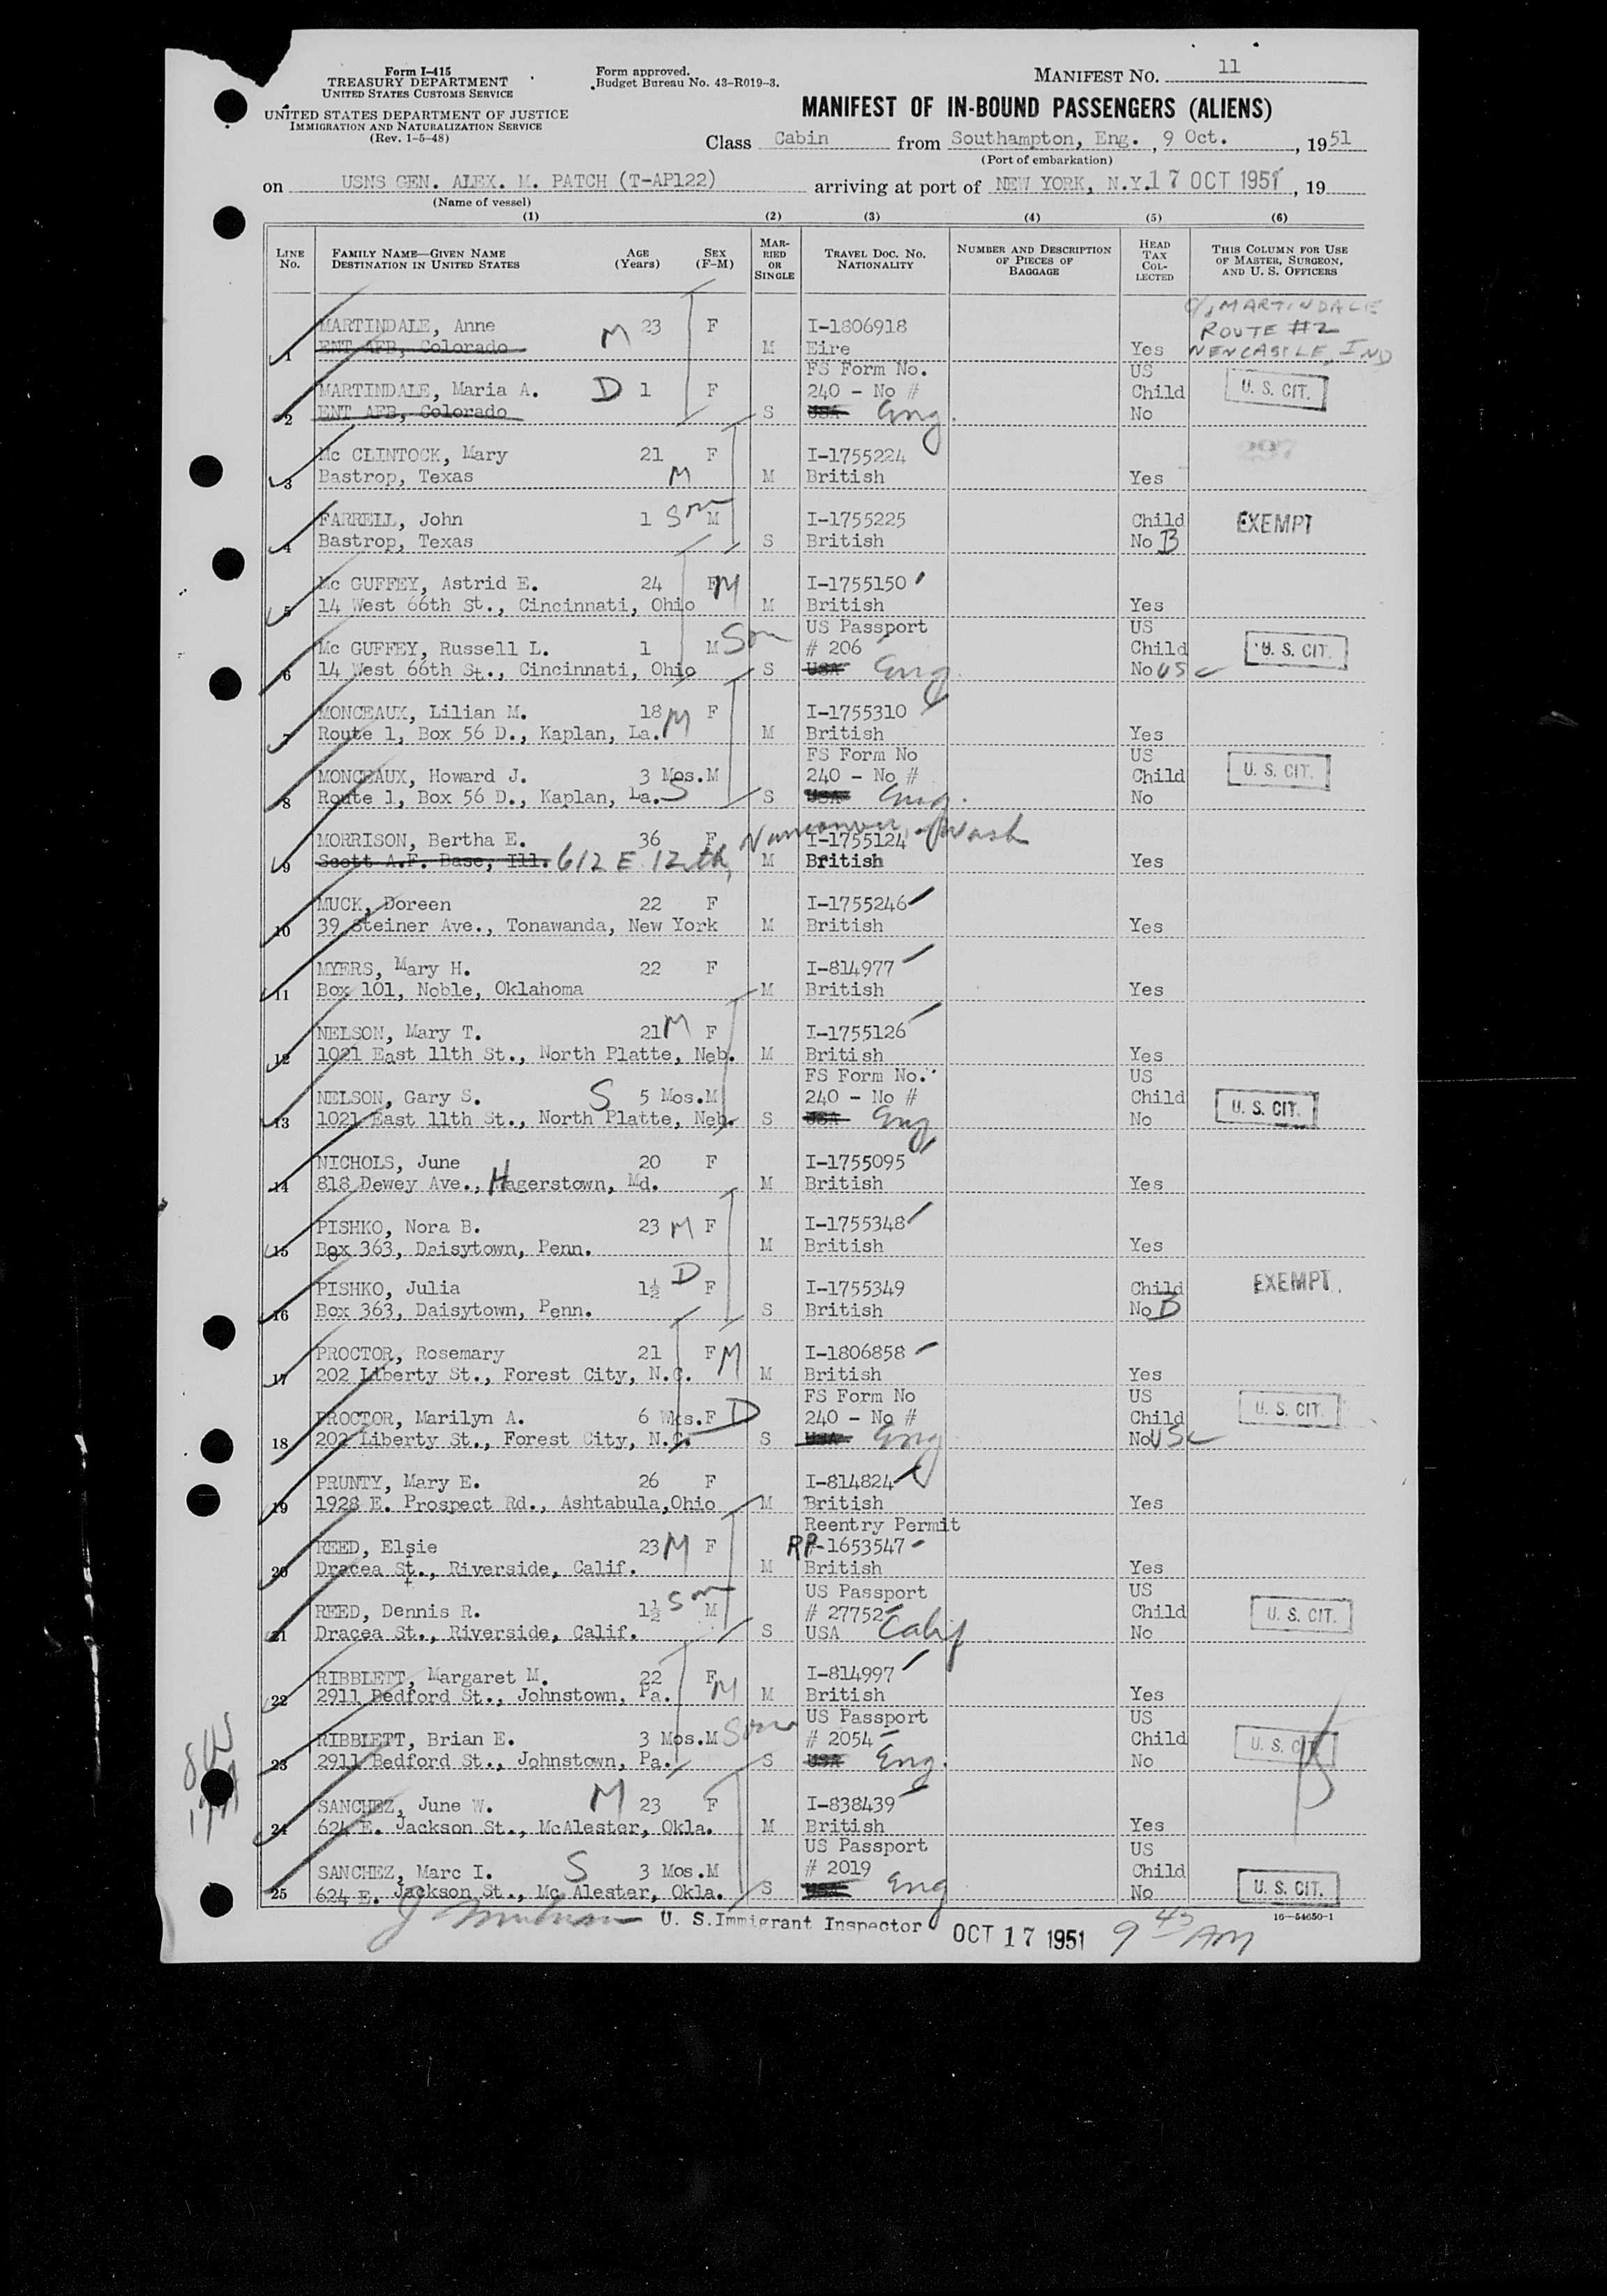 Form I-415
TREASURY DEPARTMENT
UNITED STATES CUSTOMS SERVICE
UNITED STATES DEPARTMENT OF JUSTICE
IMMIGRATION AND NATURALIZATION SERVICE
(Rev. 1-5-48)
Form approved.
Budget Bureau No. 43-R019-3.
MANIFEST NO. 11
MANIFEST OF IN-BOUND PASSENGERS (ALIENS)
Class Cabin from Southampton, Eng. , 9 Oct. , 1951
(Port of embarkation)
on USNS GEN. ALEX. M. PATCH (T-AP122) arriving at port of NEW YORK, N.Y. 17 OCT 1951 , 19
(Name of vessel)
(1) (2) (3) (4) (5) (6)
LINE No. FAMILY NAME—GIVEN NAME DESTINATION IN UNITED STATES AGE (Years) SEX (F-M) MARRIED OR SINGLE TRAVEL DOC. NO. NATIONALITY NUMBER AND DESCRIPTION OF PIECES OF BAGGAGE HEAD TAX COLLECTED THIS COLUMN FOR USE OF MASTER, SURGEON, AND U. S. OFFICERS
C/o MARTINDALE
MARTINDALE, Anne M 23 F I-1806918 ROUTE #2
1 ENT AFB, Colorado M Eire Yes NEWCASTLE, IND
FS Form No. US
MARTINDALE, Maria A. D 1 F 240 - No # Child U. S. CIT.
2 ENT AFB, Colorado S USA Eng. No
Mc CLINTOCK, Mary 21 F I-1755224
3 Bastrop, Texas M M British Yes
FARRELL, John 1 Son M I-1755225 Child EXEMPT
4 Bastrop, Texas S British No B
Mc GUFFEY, Astrid E. 24 F M I-1755150
5 14 West 66th St., Cincinnati, Ohio M British Yes
US Passport US
Mc GUFFEY, Russell L. 1 M Son # 206 Child U. S. CIT.
6 14 West 66th St., Cincinnati, Ohio S USA Eng No USC
MONCEAUX, Lilian M. 18 M F I-1755310
7 Route 1, Box 56 D., Kaplan, La. M British Yes
FS Form No US
MONCEAUX, Howard J. 3 Mos. M 240 - No # Child U. S. CIT.
8 Route 1, Box 56 D., Kaplan, La. S S USA Eng. No
MORRISON, Bertha E. 36 F Vancouver, Wash I-1755124
9 Scott A.F. Base, Ill. 612 E 12th, M British Yes
MUCK, Doreen 22 F I-1755246
10 39 Steiner Ave., Tonawanda, New York M British Yes
MYERS, Mary H. 22 F I-814977
11 Box 101, Noble, Oklahoma M British Yes
NELSON, Mary T. 21 M F I-1755126
12 1021 East 11th St., North Platte, Neb. M British Yes
FS Form No. US
NELSON, Gary S. S 5 Mos. M 240 - No # Child U. S. CIT.
13 1021 East 11th St., North Platte, Neb. S USA Eng No
NICHOLS, June 20 F I-1755095
14 818 Dewey Ave., Hagerstown, Md. M British Yes
PISHKO, Nora B. 23 M F I-1755348
15 Box 363, Daisytown, Penn. M British Yes
PISHKO, Julia 1½ D F I-1755349 Child EXEMPT
16 Box 363, Daisytown, Penn. S British No B
PROCTOR, Rosemary 21 F M I-1806858
17 202 Liberty St., Forest City, N.C. M British Yes
FS Form No US
PROCTOR, Marilyn A. 6 Wks. F D 240 - No # Child U. S. CIT.
18 202 Liberty St., Forest City, N.C. S USA Eng No USC
PRUNTY, Mary E. 26 F I-814824
19 1928 E. Prospect Rd., Ashtabula, Ohio M British Yes
Reentry Permit
REED, Elsie 23 M F RP-1653547
20 Dracea St., Riverside, Calif. M British Yes
US Passport US
REED, Dennis R. 1½ Son M # 27752 Child U. S. CIT.
21 Dracea St., Riverside, Calif. S USA Calif No
RIBBLETT, Margaret M. 22 F M I-814997
22 2911 Bedford St., Johnstown, Pa. M British Yes
US Passport US
RIBBLETT, Brian E. 3 Mos. M Son # 2054 Child U. S. CIT.
23 2911 Bedford St., Johnstown, Pa. S USA Eng. No
SANCHEZ, June W. M 23 F I-838439
24 624 E. Jackson St., McAlester, Okla. M British Yes
US Passport US
SANCHEZ, Marc I. S 3 Mos. M # 2019 Child
25 624 E. Jackson St., Mc Alester, Okla. S USA Eng No U. S. CIT.
U. S. Immigrant Inspector OCT 17 1951 9 45 AM
16—54650-1